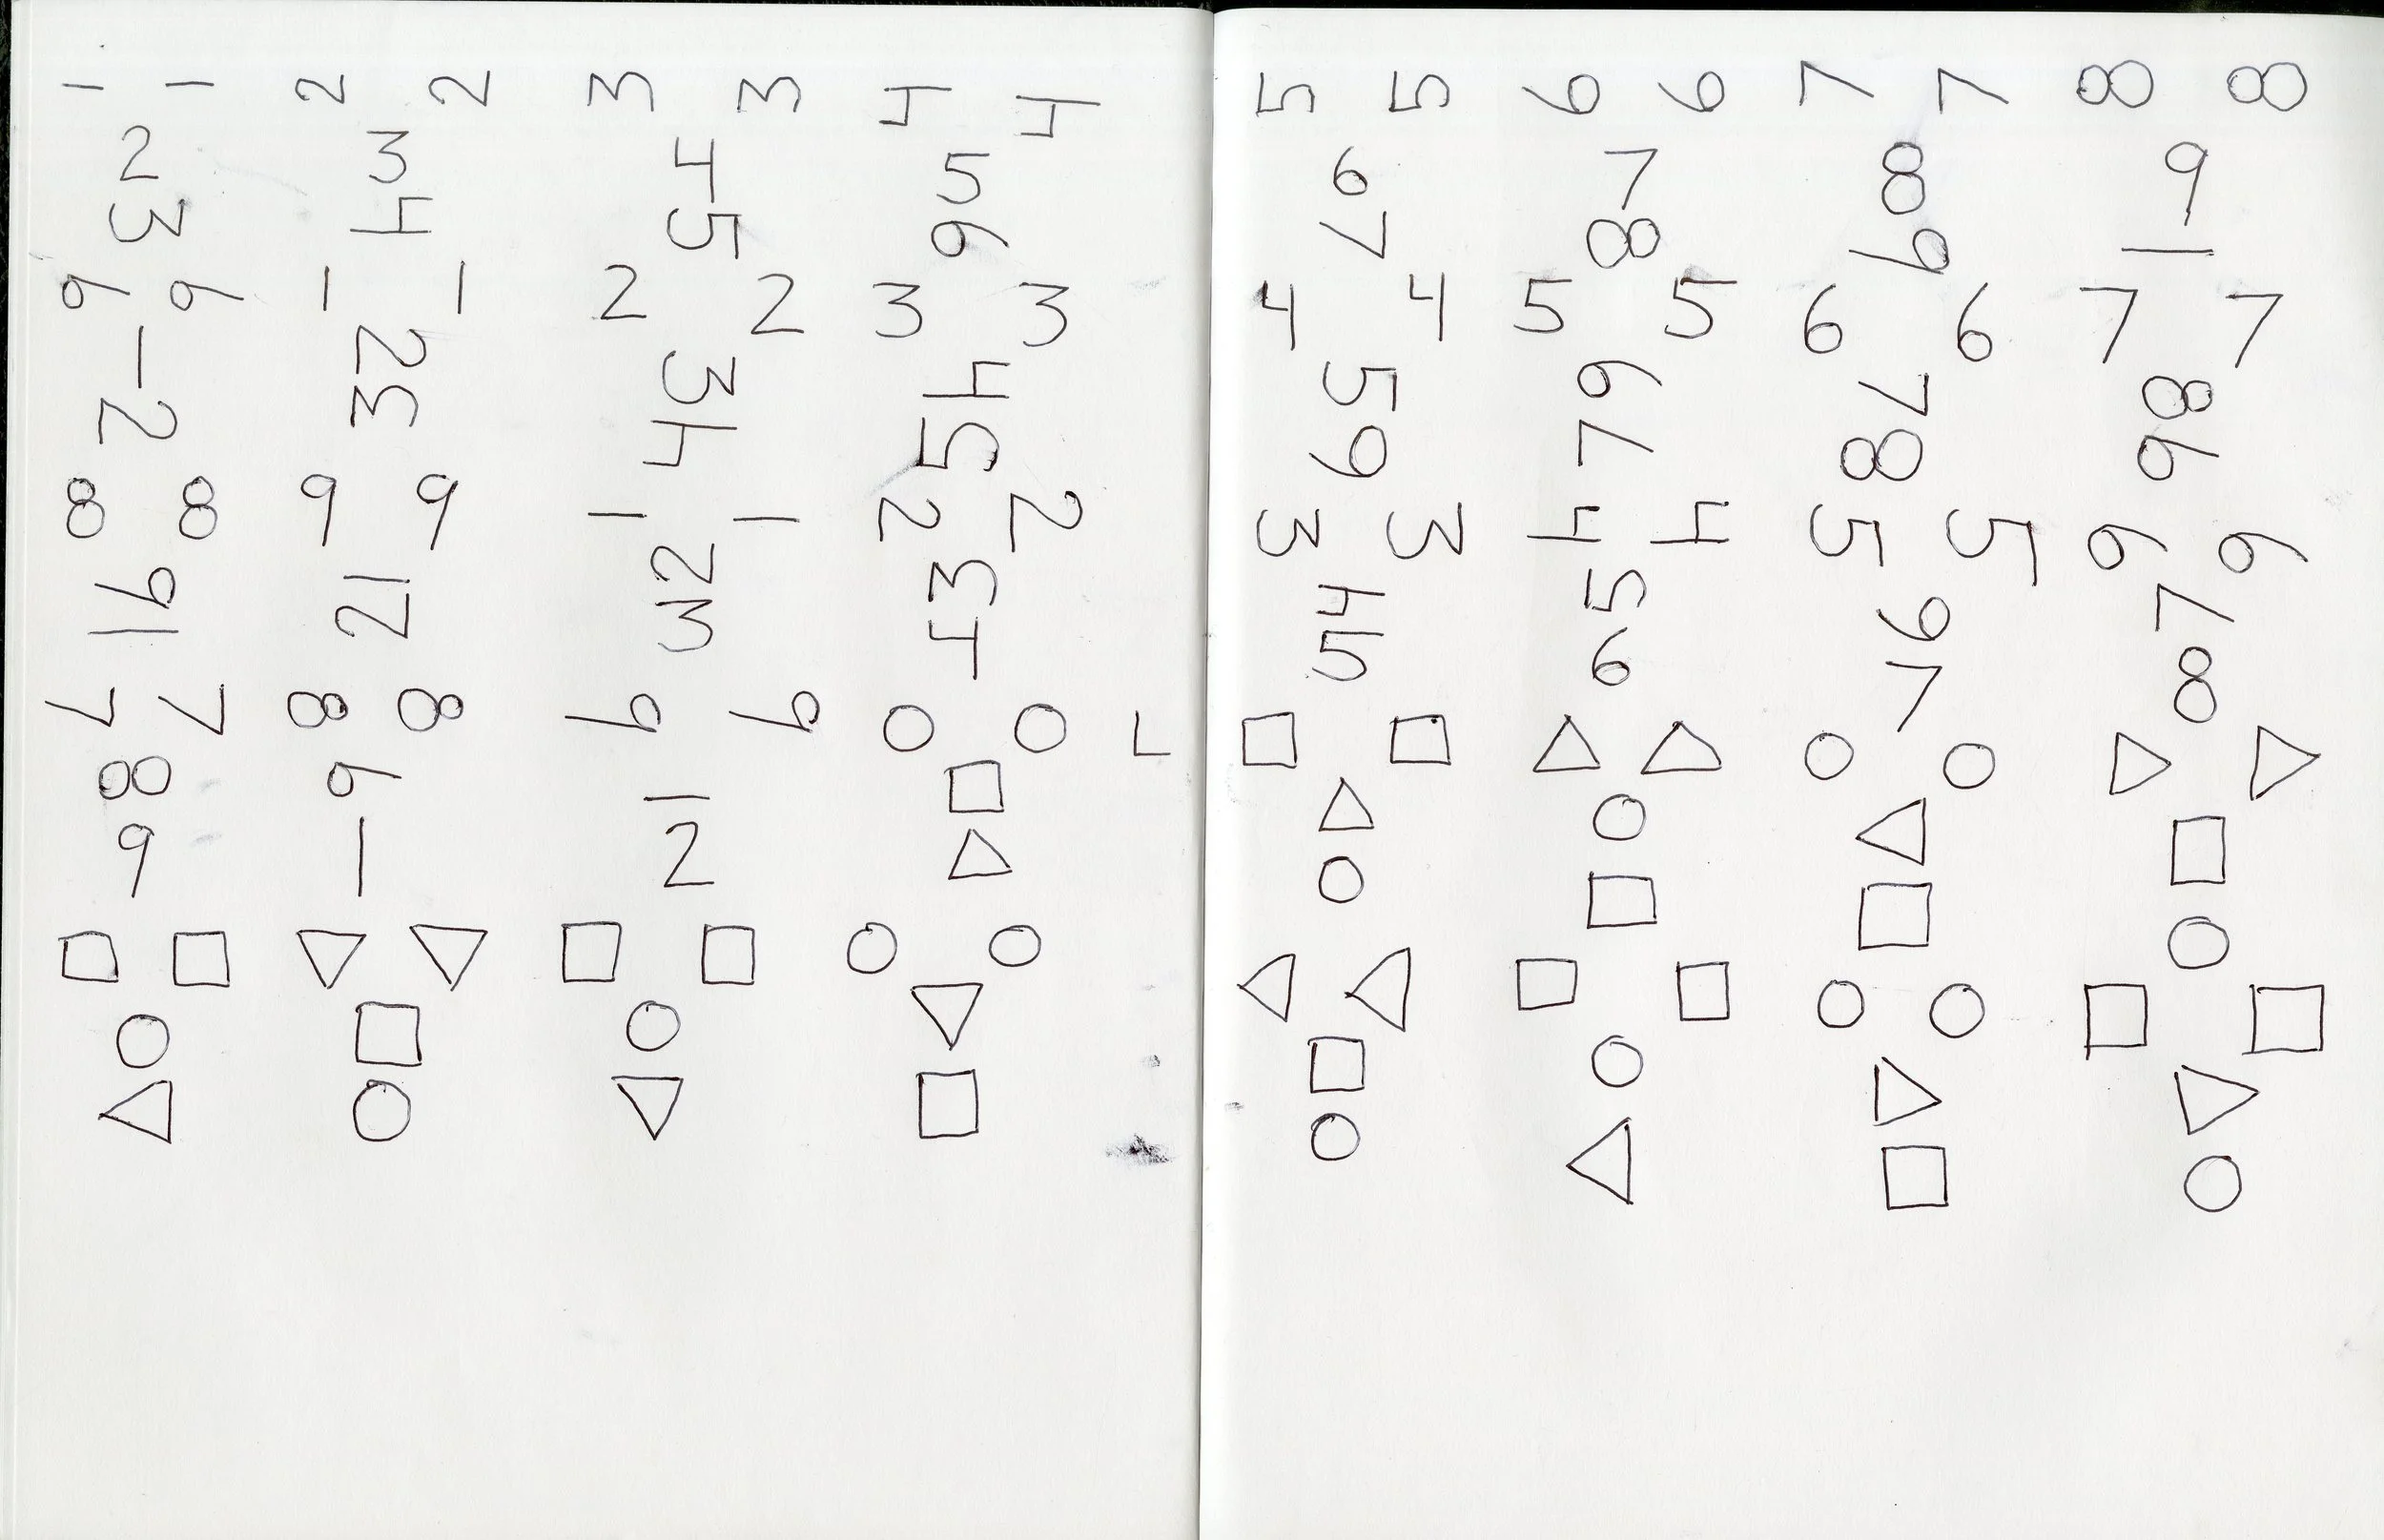 1 1 2 2 3 3 4 4 5 5 6 6 7 7 8 8
2 3 4 5 6 7 8 9
3 4 5 6 7 8 9 1
9 9 1 1 2 2 3 3 4 4 5 5 6 6 7 7
1 2 3 4 5 6 7 8
2 3 4 5 6 7 8 9
8 8 9 9 1 1 2 2 3 3 4 4 5 5 6 6
9 1 2 3 4 5 6 7
1 2 3 4 5 6 7 8
7 7 8 8 9 9
8 9 1
9 1 2